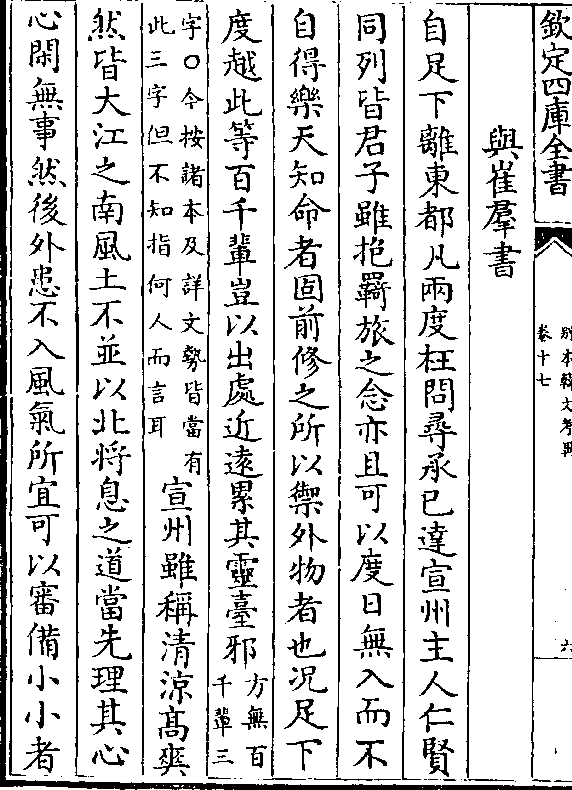 欽定四庫全書
別本韓文考異
卷十七
六
與崔羣書
自足下離東都凡兩度枉問尋承已達宣州主人仁賢
同列皆君子雖抱羇旅之念亦且可以度日無入而不
自得樂天知命者固前修之所以禦外物者也况足下
度越此等百千輩豈以出處近逺累其靈臺邪方無百千輩三
字〇今按諸本及詳文勢皆當有此三字但不知指何人而言耳宣州雖稱清涼髙爽
然皆大江之南風土不並以北将息之道當先理其心
心閑無事然後外患不入風氣所宜可以審備小小者